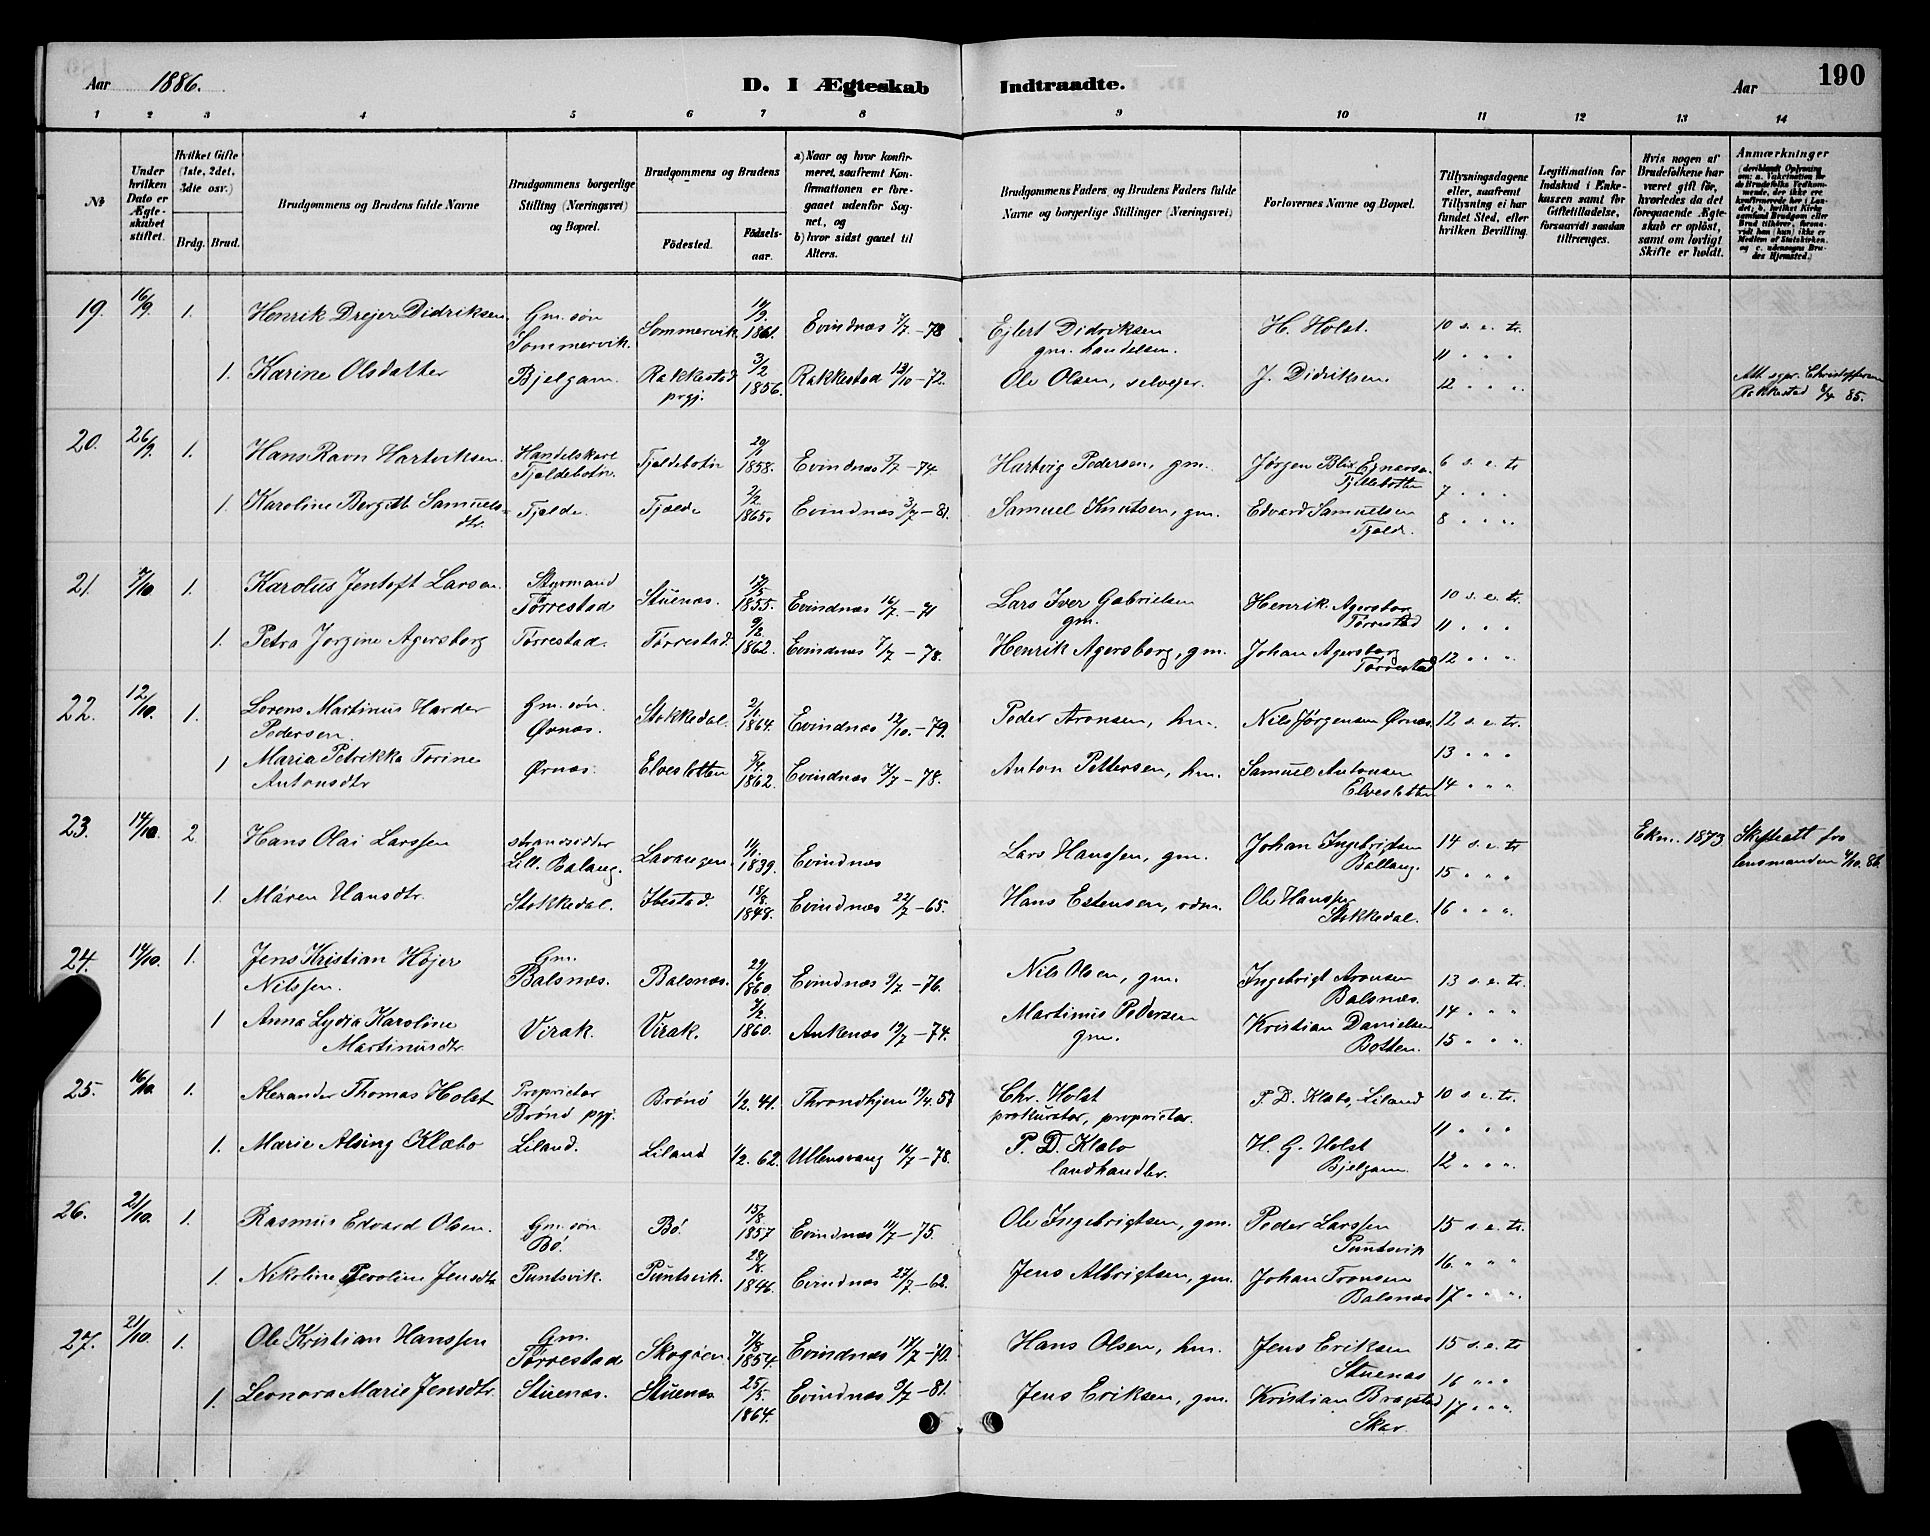 Aar 1886. D. I Ægteskab Indtraadte. Aar 190
1 2 3 4 5 6 7 8 9 10 11 12 13 14
№
Under hvilken Dato er Ægteskabet stiftet.
Hvilket Gifte (1ste, 2det, 3die osv.)
Brdg. Brud.
Brudgommens og Brudens fulde Navne
Brudgommens borgerlige Stilling (Næringsvei) og Bopæl.
Brudgommens og Brudens
Födested. Födsels-aar.
a) Naar og hvor konfirmeret, saafremt Konfirmationen er foregaaet udenfor Sognet, og
b) hvor sidst gaaet til Alters.
Brudgommens Faders og Brudens Faders fulde Navne og borgerlige Stillinger (Næringsvei)
Forlovernes Navne og Bopæl.
Tillysningsdagene eller, saafremt Tillysning ei har fundet Sted, efter hvilken Bevilling.
Legitimation for Indskud i Enkekassen samt for Giftetilladelse, forsaavidt saadan tiltrænges.
Hvis nogen af Brudefolkene har været gift för, hvorledes da det foregaaende Ægteskab er oplöst, samt om lovligt Skifte er holdt.
Anmærkninger
19. 16/9. 1. Henrik Drejer Didriksen Gm. søn Sommervik. Sommervik. 19/9. 1861. Evindnæs 7/7 – 78 Ejlert Didriksen gm. handelsm. H. Holst. 10 s. e. tr.
11 " " "
1. Karine Olsdatter Bjelgam. Rakkestad prgj. 3/2 1856. Rakkestad 13/10 – 72. Ole Olsen, selvejer. J. Didriksen 12 " " " Att. sgpr. Christophersen Rakkestad 8/4 85.
20. 26/9. 1. Hans Ravn Hartviksen. Handelskarl Tjeldebotn. Tjeldebotn 1858. Evindnæs 5/7 – 74. Hartvig Pedersen, gm. Jørgen Blix Ejnarsen Tjellebotten 6 s. e. tr
7 " " "
1. Karoline Bergitt Samuelsdtr. Tjelde. Tjelde 2/2. 1865. Evindnæs 3/7 – 81. Samuel Knutsen, gm. Edvard Samuelsen Tjeld. 8 " " "
21. 7/10 1. Karolus Jentoft Larsen Styrmand Tørrestad Stuenæs. 17/5 1855. Evindnæs 16/7 – 71 Lars Iver Gabrielsen gm. Henrik Agersborg Tørrestad 10 s. e. tr.
11 " " "
1. Petra Jørgine Agersborg Tørrestad. Tørrestad. 9/2. 1862. Evindnæs 7/7 – 78. Henrik Agersborg, gm. Johan Agersborg Tørrestad 12 " " "
22. 12/10. 1. Lorens Martinus Harder Pedersen. Gm. søn. Ørnæs. Stokkedal. 1864. Evindnæs 12/10. – 79. Peder Aronsen, hm. Nils Jørgensen Ørnæs. 12 s. e. tr.
13 " " "
1 Maria Petrikka Torine Antonsdtr Ørnæs. Elveslotten 5/4. 1862. Evindnæs 7/7 – 78. Anton Pettersen, hm. Samuel Antonsen Elveslotten 14 " " "
23. 14/10. 2 Hans Olai Larssen strandsidder Lill. Balang. Lavangen. 1839. Evindnæs Lars Hanssen, gm. Johan Ingebrigtsen Ballang. 14 s. e. tr. Ekm. 1873 Skifteatt fra lensmanden 4/10. 86.
15 " " "
1. Maren Hansdtr. Stokkedal. Ibestad. 18/8. 1848. Evindnæs 22/7 – 65. Hans Estensen, odm. Ole Hanssen Stokkedal. 16 " " "
24. 14/10. 1. Jens Kristian Højer Nilssen. Gm. Balsnæs. Balsnæs. 29/6 1860 Evindnæs 9/7 – 76. Nils Olsen, gm. Ingebrigt Aronsen Balsnæs. 13 s. e. tr.
14 " " "
1 Anna Lydia Karoline Martinusdtr. Virak. Virak. 7/2. 1860. Ankenæs 19/7 – 74. Martinus Pedersen gm. Kristian Danielsen Botten. 15 " " "
25. 16/10. 1. Alexander Thomas Holst Proprietær Brønø pgj. Brønø 1/2. 41. Throndhjem 19/4. 57 Chr. Holst prokurator, proprietær. P. D. Klæbo, Liland 10 s. e. tr.
11 " " "
1. Marie Alsing Klæbo Liland. Liland 1/2. 62. Ullensvang 16/7 – 78. P. D. Klæbo landhandler. H. G. Holst Bjelgam. 12 " " "
26. 21/10. 1. Rasmus Edvard Olsen. Gm. søn Bø. Bø. 15/8. 1857 Evindnæs 11/7 – 75. Ole Ingebrigtsen, gm. Peder Larssen Puntsvik 15 s. e. tr.
16. " " "
1. Nikoline Peroline Jensdtr Puntsvik. Puntsvik. 1846. Evindnæs 27/7 – 62. Jens Albrigtsen, gm. Johan Tronsen Balsnæs 17 " " "
27. 21/10. 1. Ole Kristian Hanssen Gm. Tørrestad Skogøen. 7/8. 1854. Evindnæs 17/7 – 70. Hans Olsen, hm. Jens Eriksen Stuenæs 15 s. e. tr
16 " " "
1. Leonora Marie Jensdtr. Stuenæs. Stuenæs 25/5. 1864. Evindnæs 9/7 – 81. Jens Eriksen, gm. Kristian Bragstad Skar. 17 " " "